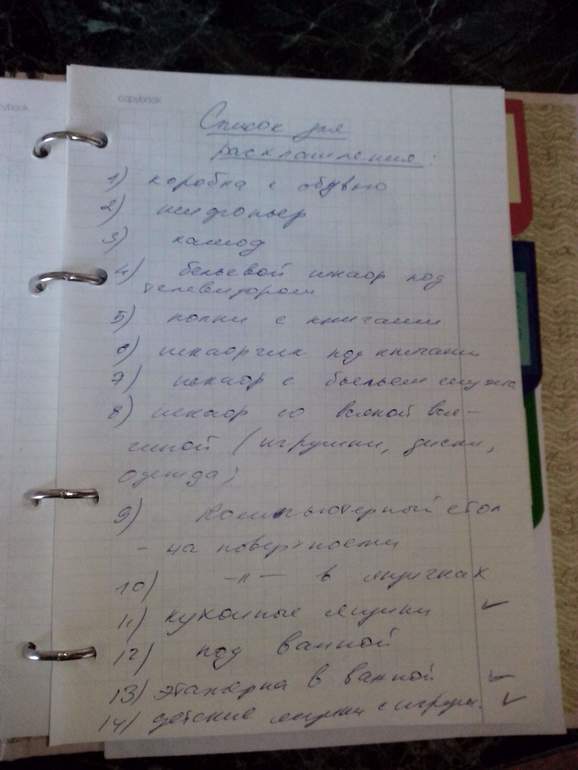 copybook
copybook
Список для
расхламления:
1) коробка с обувью
2) шифоньер
3) комод
4) бельевой шкаф под
телевизором
5) полки с книгами
6) шкафчик под книгами
7) шкаф с бельем мужа
8) шкаф со всякой вся-
чиной (игрушки, диски,
одежда)
9) Компьютерный стол
- на поверхности
10) -"- в ящичках
11) кухонные ящики ✓
12) под ванной
13) этажерка в ванной ✓
14) детские ящики с игруш. ✓